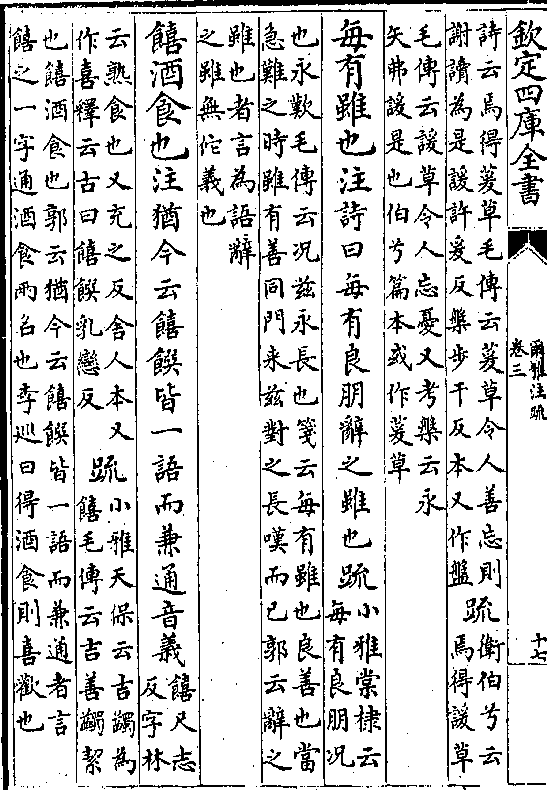 欽定四庫全書
爾雅注疏
卷三
十七
詩云焉得萲草毛傳云萲草令人善忘則
謝讀為是諼許爰反槃步干反本又作盤
疏
衛伯兮云
焉得諼草
毛傳云諼草令人忘憂又考槃云永
矢弗諼是也伯兮篇本或作萲草
每有雖也注詩曰每有良朋辭之雖也疏
小雅棠棣云
每有良朋况
也永歎毛傳云况兹永長也箋云每有雖也良善也當
急難之時雖有善同門来兹對之長嘆而已郭云辭之
雖也者言為語辭
之雖無佗義也
饎酒食也注猶今云饎饌皆一語而兼通音義
饎尺志
反字林
云熟食也又充之反舍人本又
作喜釋云古曰饎饌乳戀反
疏
小雅天保云吉蠲為
饎毛傳云吉善蠲絜
也饎酒食也郭云猶今云饎饌皆一語而兼通者言
饎之一字通酒食兩名也李巡曰得酒食則喜歡也